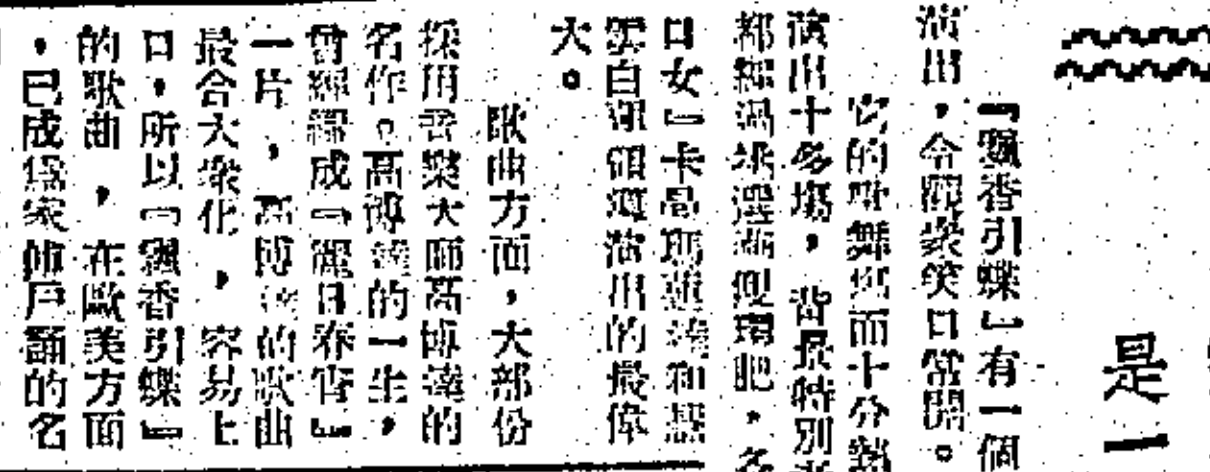 是一
『飄香引蝶』有一個
演出,令觀衆笑口常開。
它的歌舞場面十分
演出十多場,背景特別
都經過
口女』卡
雲白 領導演出的最偉
大。
歌曲方面,大部份
採用音樂大師高博達的
名作。高博達的一生,
曾經編成『麗日春宵』
一片,高博達的歌曲
最合大衆化,容易上
口,所以『飄香引蝶』
的歌曲,在歐美方面
,已成爲家傳戶誦的名